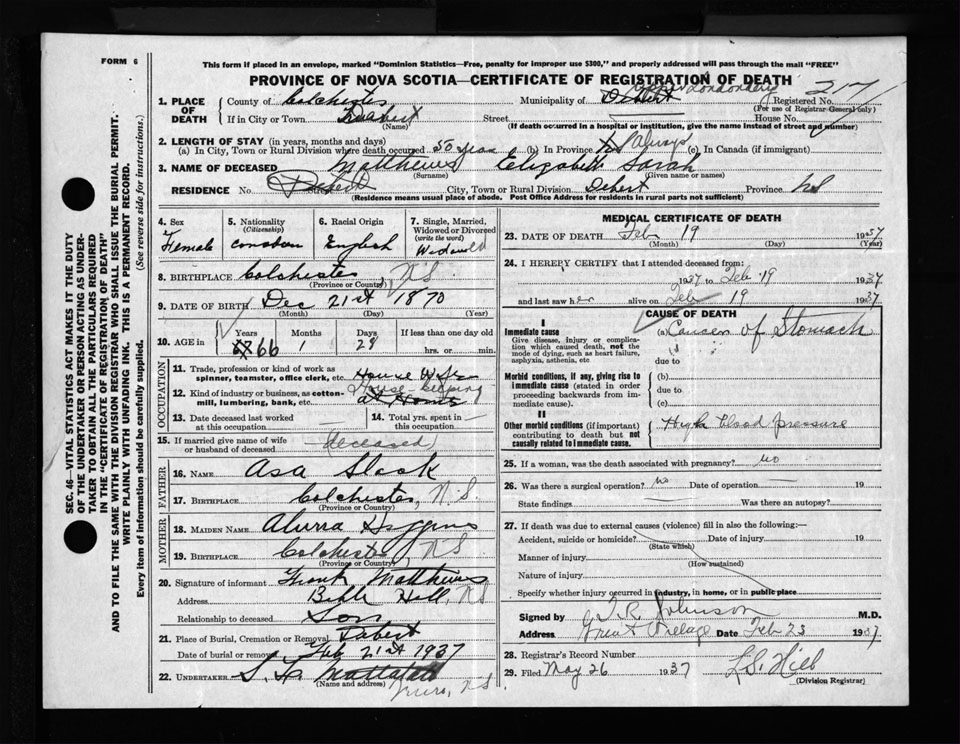 FORM 6
This form if placed in an envelope, marked "Dominion Statistics—Free, penalty for improper use $300," and properly addressed will pass through the mail "FREE"
PROVINCE OF NOVA SCOTIA—CERTIFICATE OF REGISTRATION OF DEATH
1. PLACE OF DEATH
County of Colchester Municipality of Debert Londonderry Registered No. 217
(For use of Registrar General only)
If in City or Town Debert Street House No.
(Name) (If death occurred in a hospital or institution, give the name instead of street and number)
2. LENGTH OF STAY (in years, months and days)
(a) In City, Town or Rural Division where death occurred 50 years (b) In Province Always (c) In Canada (if immigrant)
3. NAME OF DECEASED Matthews Elizabeth Sarah
(Surname) (Given name or names)
RESIDENCE No. Street Debert City, Town or Rural Division Debert Province NS
(Residence means usual place of abode. Post Office Address for residents in rural parts not sufficient)
4. Sex
Female
5. Nationality
(Citizenship)
Canadian
6. Racial Origin
English
7. Single, Married, Widowed or Divorced
(write the word)
Widowed
8. BIRTHPLACE Colchester, N.S.
(Province or Country)
9. DATE OF BIRTH Dec 21st 1870
(Month) (Day) (Year)
10. AGE in
Years Months Days If less than one day old
67 66 1 28 hrs. or min.
OCCUPATION
11. Trade, profession or kind of work as spinner, teamster, office clerk, etc. House Wife
12. Kind of industry or business, as cotton-mill, lumbering, bank, etc. House keeping at Home
13. Date deceased last worked at this occupation
14. Total yrs. spent in this occupation
15. If married give name of wife or husband of deceased (deceased)
FATHER
16. NAME Asa Slack
17. BIRTHPLACE Colchester, N.S.
(Province or Country)
MOTHER
18. MAIDEN NAME Higgins
19. BIRTHPLACE Colchester NS
(Province or Country)
20. Signature of informant Frank Matthews
Address Bible Hill, NS
Relationship to deceased Son
21. Place of Burial, Cremation or Removal Debert
Date of burial or removal Feb 21st 1937
22. UNDERTAKER S. Mattatall
(Name and address) Truro, N.S.
MEDICAL CERTIFICATE OF DEATH
23. DATE OF DEATH Feb 19 1937
(Month) (Day) (Year)
24. I HEREBY CERTIFY that I attended deceased from:
1937 to Feb 19 1937
and last saw her alive on Feb 19 1937
CAUSE OF DEATH
I
Immediate cause
Give disease, injury or complication which caused death, not the mode of dying, such as heart failure, asphyxia, asthenia, etc
(a) Cancer of Stomach
due to
Morbid conditions, if any, giving rise to immediate cause (stated in order proceeding backwards from immediate cause).
(b)
due to
(c)
II
Other morbid conditions (if important) contributing to death but not causally related to immediate cause.
High blood pressure
25. If a woman, was the death associated with pregnancy? no
26. Was there a surgical operation? no Date of operation 19
State findings Was there an autopsy?
27. If death was due to external causes (violence) fill in also the following:—
Accident, suicide or homicide? Date of injury 19
(State which)
Manner of injury
(How sustained)
Nature of injury
Specify whether injury occurred in industry, in home, or in public place
Signed by T.R. Johnson M.D.
Address Great Village Date Feb 23 1937
28. Registrar's Record Number
29. Filed May 26 1937 L.S. Hill
(Division Registrar)
SEC. 46—VITAL STATISTICS ACT MAKES IT THE DUTY
OF THE UNDERTAKER OR PERSON ACTING AS UNDERTAKER TO OBTAIN ALL THE PARTICULARS REQUIRED
IN THE "CERTIFICATE OF REGISTRATION OF DEATH"
AND TO FILE THE SAME WITH THE DIVISION REGISTRAR WHO SHALL ISSUE THE BURIAL PERMIT.
WRITE PLAINLY WITH UNFADING INK. THIS IS A PERMANENT RECORD.
Every item of information should be carefully supplied. (See reverse side for instructions.)